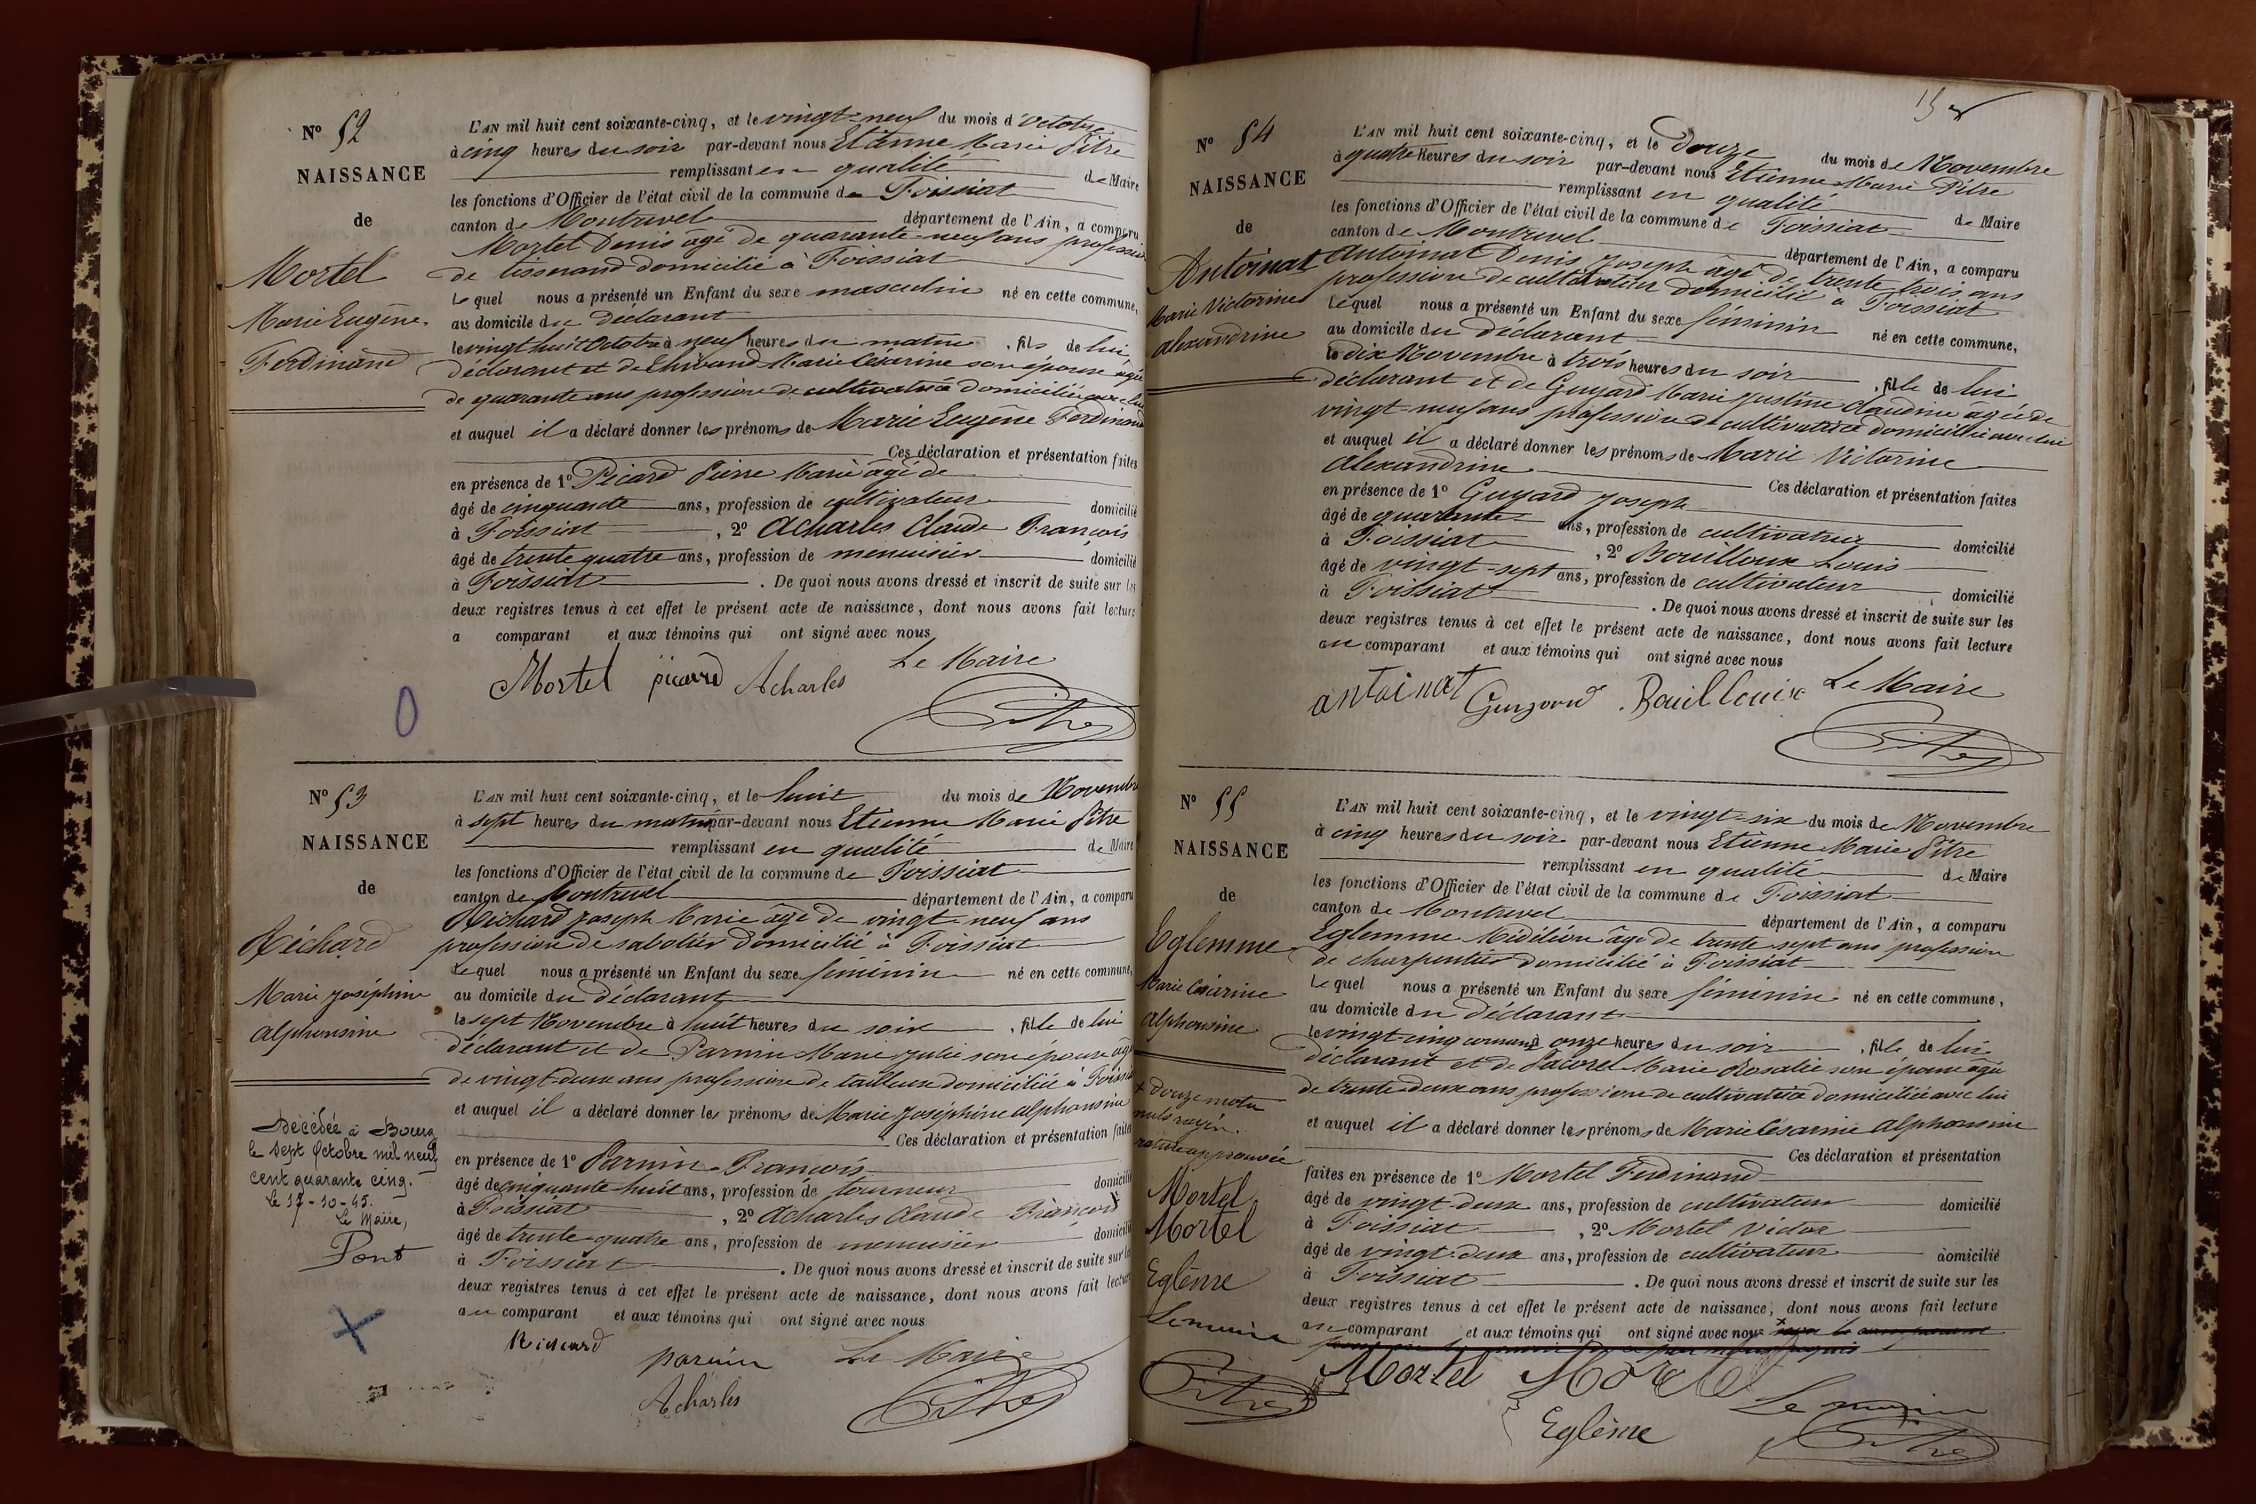 N° 52
NAISSANCE
de
Mortel
Marie Eugène
Ferdinand
L'AN mil huit cent soixante-cinq, et le vingt-neuf du mois d'Octobre
à cinq heures du soir par-devant nous Etienne Marie Pitre
remplissant en qualité de Maire
les fonctions d'Officier de l'état civil de la commune de Foissiat
canton de Montrevel département de l'Ain, a comparu
Mortel Denis âgé de quarante-neuf ans profession
de tisserand domicilié à Foissiat
Lequel nous a présenté un Enfant du sexe masculin né en cette commune,
au domicile du déclarant
le vingt huit Octobre à neuf heures du matin, fils de lui
déclarant et de Marie Césarine son épouse agée
de quarante ans profession de cultivatrice domiciliée avec lui
et auquel il a déclaré donner les prénoms de Marie Eugène Ferdinand
Ces déclaration et présentation faites
en présence de 1° Picard Pierre Marie âgé de
âgé de cinquante ans, profession de cultivateur domicilié
à Foissiat, 2° Acharles Claude François
âgé de trente quatre ans, profession de menuisier domicilié
à Foissiat. De quoi nous avons dressé et inscrit de suite sur les
deux registres tenus à cet effet le présent acte de naissance, dont nous avons fait lecture
a comparant et aux témoins qui ont signé avec nous
Le Maire
Mortel picard Acharles
Pitre
N° 53
NAISSANCE
de
Réchard
Marie Joséphine
Alphonsine
Décédée à Bourg
le sept Octobre mil neuf
cent quarante cinq.
Le 17-10-45.
Le Maire,
Pont
L'AN mil huit cent soixante-cinq, et le huit du mois de Novembre
à sept heures du matin par-devant nous Etienne Marie Pitre
remplissant en qualité de Maire
les fonctions d'Officier de l'état civil de la commune de Foissiat
canton de Montrevel département de l'Ain, a comparu
Réchard Joseph Marie âgé de vingt-neuf ans
profession de sabotier domicilié à Foissiat
Lequel nous a présenté un Enfant du sexe féminin né en cette commune,
au domicile du déclarant
le sept Novembre à huit heures du soir, fille de lui
déclarant et de Parnin Marie Julie son épouse âgée
de vingt-deux ans profession de tailleuse domiciliée à Foissiat
et auquel il a déclaré donner les prénoms de Marie Joséphine Alphonsine
Ces déclaration et présentation faites
en présence de 1° Parnin François
âgé de cinquante-huit ans, profession de tourneur domicilié
à Foissiat, 2° Acharles Claude François
âgé de trente-quatre ans, profession de menuisier domicilié
à Foissiat. De quoi nous avons dressé et inscrit de suite sur les
deux registres tenus à cet effet le présent acte de naissance, dont nous avons fait lecture
au comparant et aux témoins qui ont signé avec nous
Richard parnin Le Maire
Acharles Pitre
N° 54
NAISSANCE
de
Antoinat
Marie Victorine
Alexandrine
L'AN mil huit cent soixante-cinq, et le Douze du mois de Novembre
à quatre heures du soir par-devant nous Etienne Marie Pitre
remplissant en qualité de Maire
les fonctions d'Officier de l'état civil de la commune de Foissiat
canton de Montrevel département de l'Ain, a comparu
Antoinat Denis Joseph âgé de trente trois ans
profession de cultivateur domicilié à Foissiat
Lequel nous a présenté un Enfant du sexe féminin né en cette commune,
au domicile du déclarant
le dix Novembre à trois heures du soir, fille de lui
déclarant et de Guyard Marie Justine Claudine âgée de
vingt-neuf ans profession de cultivatrice domiciliée avec lui
et auquel il a déclaré donner les prénoms de Marie Victorine
Alexandrine Ces déclaration et présentation faites
en présence de 1° Guyard Joseph
âgé de quarante ans, profession de cultivateur domicilié
à Foissiat, 2° Bouilloux Louis
âgé de vingt-sept ans, profession de cultivateur domicilié
à Foissiat. De quoi nous avons dressé et inscrit de suite sur les
deux registres tenus à cet effet le présent acte de naissance, dont nous avons fait lecture
au comparant et aux témoins qui ont signé avec nous
antoinat Le Maire
Pitre
N° 55
NAISSANCE
de
Eglemme
Marie Césarine
Alphonsine
+ douze mots
nuls rayés
rature approuvée
Mortel
Mortel
Eglème
Le maire
Pitre
L'AN mil huit cent soixante-cinq, et le vingt-six du mois de Novembre
à cinq heures du soir par-devant nous Etienne Marie Pitre
remplissant en qualité de Maire
les fonctions d'Officier de l'état civil de la commune de Foissiat
canton de Montrevel département de l'Ain, a comparu
Eglemme âgé de trente-sept ans profession
de charpentier domicilié à Foissiat
Lequel nous a présenté un Enfant du sexe féminin né en cette commune,
au domicile du déclarant
le vingt-cinq courant à onze heures du soir, fille de lui
déclarant et de Marie Rosalie son épouse âgée
de trente-deux ans profession de cultivatrice domiciliée avec lui
et auquel il a déclaré donner les prénoms de Marie Césarine Alphonsine
Ces déclaration et présentation
faites en présence de 1° Mortel Ferdinand
âgé de vingt-deux ans, profession de cultivateur domicilié
à Foissiat, 2° Mortel Victor
âgé de vingt-deux ans, profession de cultivateur domicilié
à Foissiat. De quoi nous avons dressé et inscrit de suite sur les
deux registres tenus à cet effet le présent acte de naissance, dont nous avons fait lecture
au comparant et aux témoins qui ont signé avec nous
Mortel Mortel
Le maire
Eglème Pitre